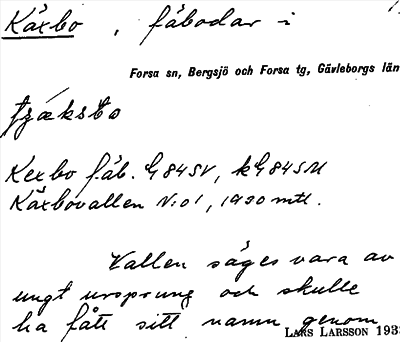 Käxbo, fäbodar i
Forsa sn, Bergsjö och Forsa tg, Gävleborgs län
Kexbo fäb. G84SV, kG84SM
Käxbovallen N:o1, 1930 mtl.
Vallen säges vara av
ungt ursprung och skulle
ha fått sitt namn genom
LARS LARSSON 193